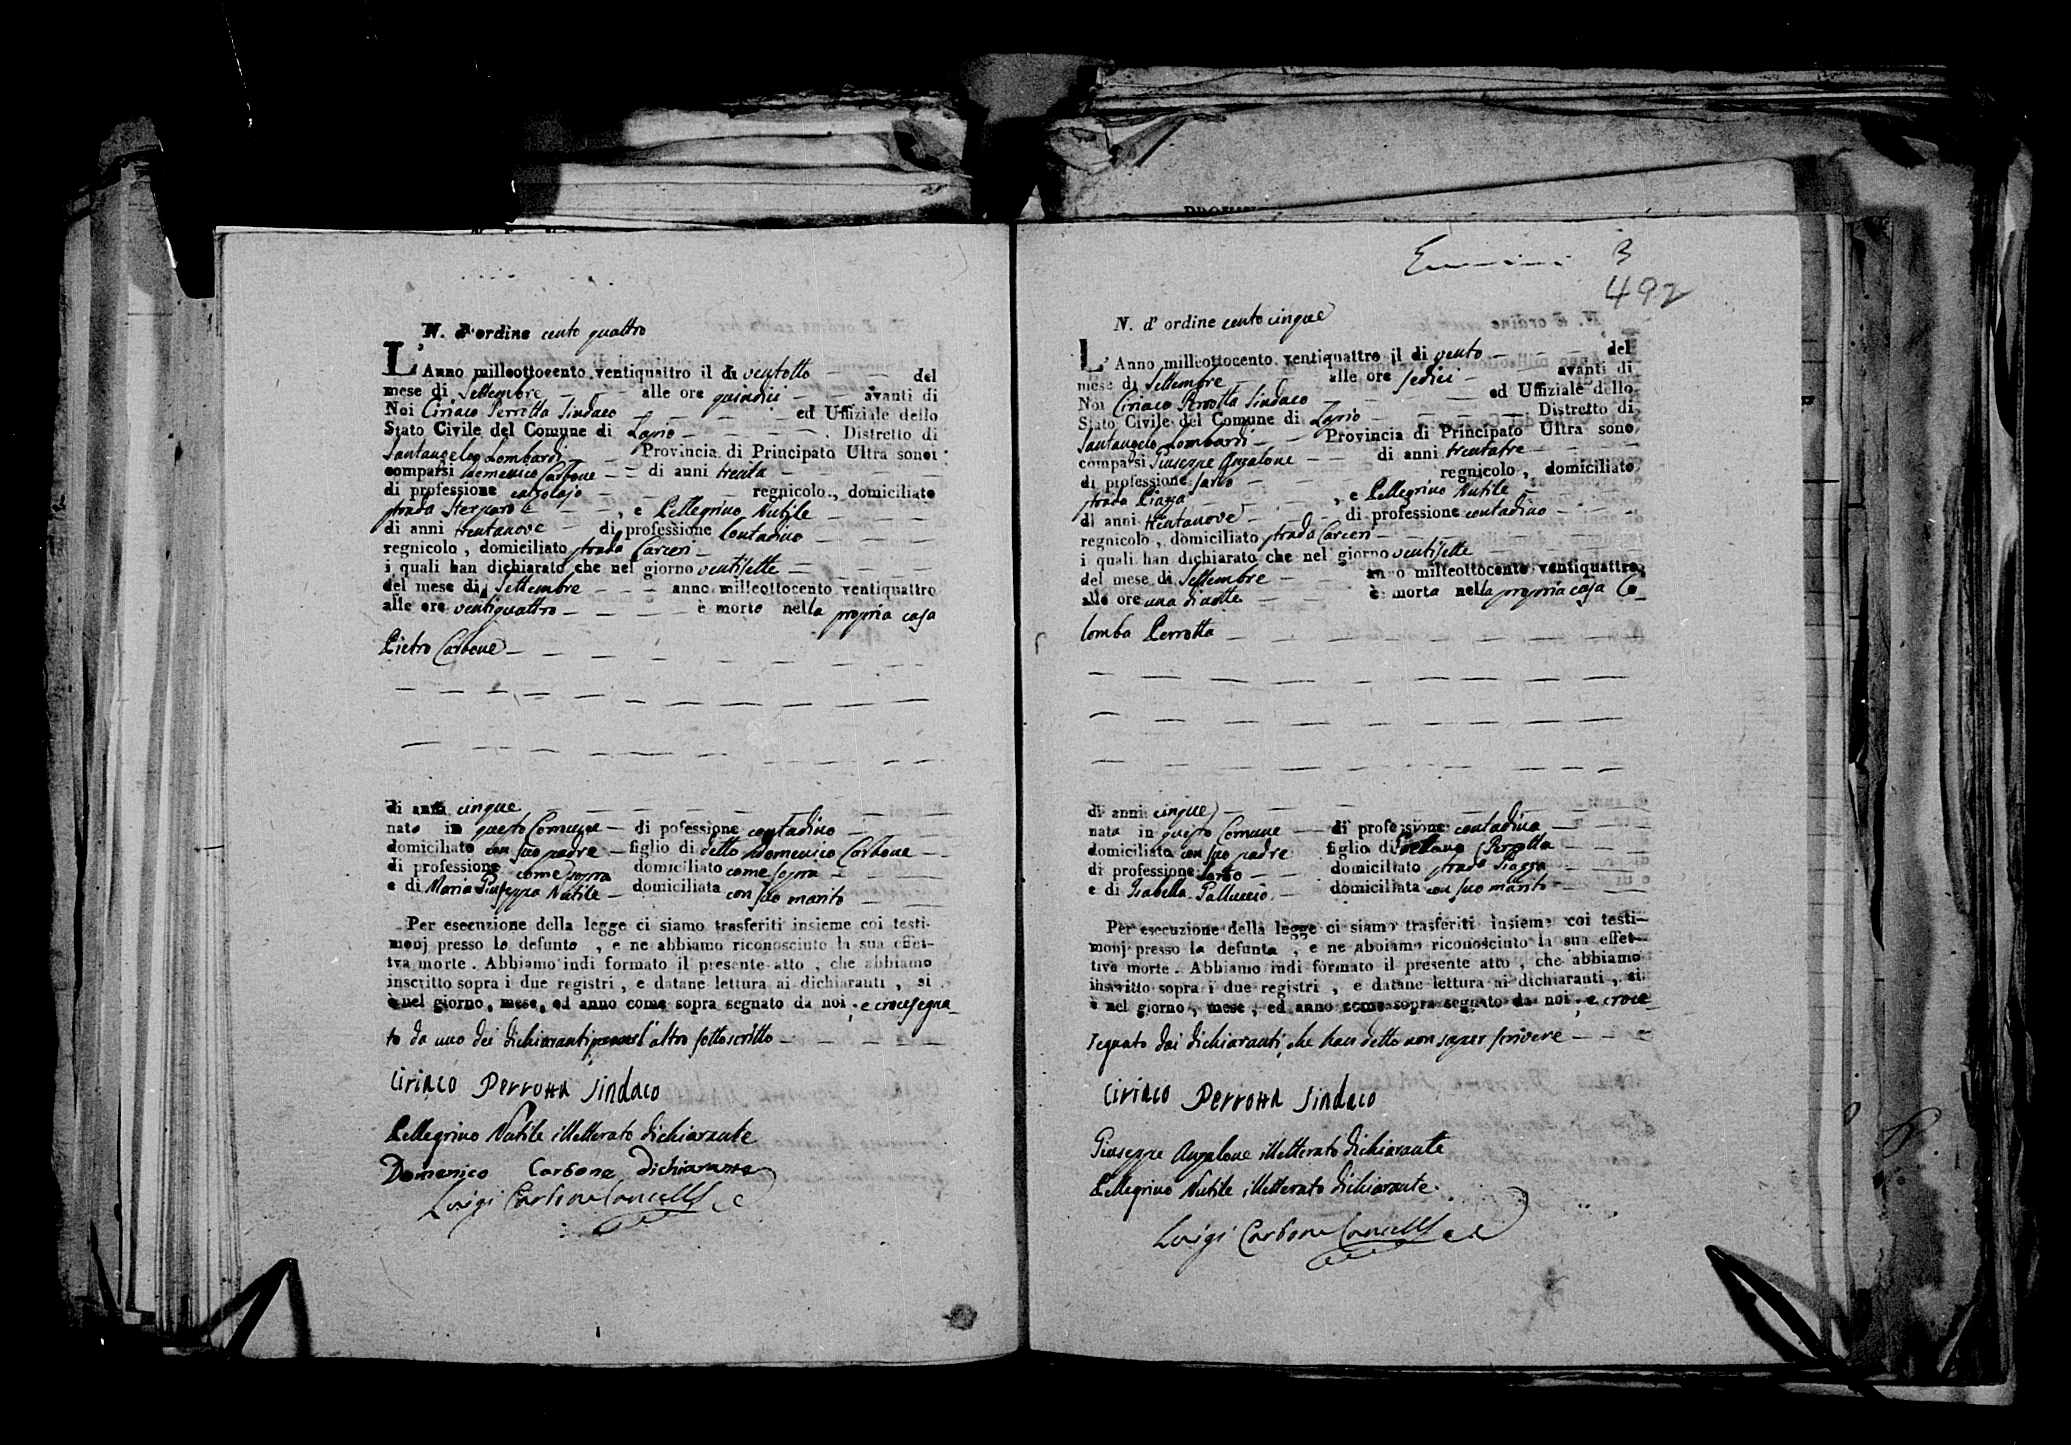 N. d'ordine cento quattro
L'Anno milleottocento ventiquattro il di ventotto del
mese di Settembre alle ore quindici avanti di
Noi Ciriaco Perrotta Sindaco ed Uffiziale dello
Stato Civile del Comune di Lapio Distretto di
Santangelo Lombardi Provincia di Principato Ultra sono
comparsi Domenico Carbone di anni trenta
di professione calzolajo regnicolo, domiciliato
strada , e Pellegrino Nutile
di anni trentanove di professione Contadino
regnicolo, domiciliato strada Carceri
i quali han dichiarato che nel giorno ventisette
del mese di Settembre anno milleottocento ventiquattro
alle ore ventiquattro è morto nella propria casa
Pietro Carbone
di anni cinque
nato in questo Comune di pofessione contadino
domiciliato con suo padre figlio di detto Domenico Carbone
di professione come sopra domiciliato come sopra
e di Maria Giuseppa Nutile domiciliata con suo marito
Per esecuzione della legge ci siamo trasferiti insieme coi testi-
monj presso lo defunto , e ne abbiamo riconosciuto la sua effet-
tva morte. Abbiamo indi formato il presente atto , che abbiamo
inscritto sopra i due registri , e datane lettura ai dichiaranti , si
è nel giorno, mese, ed anno come sopra segnato da noi, e crocesegna-
to da uno dei dichiaranti l'altro sottoscritto
Ciriaco Perrotta Sindaco
Pellegrino Nutile illetterato dichiarante
Domenico Carbone dichiarante
Luigi Carbone Cancell
3
492
N. d'ordine cento cinque
L'Anno milleottocento ventiquattro il di vento del
mese di Settembre alle ore sedici avanti di
Noi Ciriaco Perrotta Sindaco ed Uffiziale dello
Stato Civile del Comune di Lapio Distretto di
Santangelo Lombardi Provincia di Principato Ultra sono
comparsi Giuseppe Anzalone di anni trentatre
di professione sarto regnicolo, domiciliato
strada Piazza , e Pellegrino Nutile
di anni trentanove di professione contadino
regnicolo, domiciliato strada Carceri
i quali han dichiarato che nel giorno ventisette
del mese di Settembre anno milleottocento ventiquattro,
alle ore una di notte è morta nella propria casa Co-
lomba Perrotta
di anni cinque
nata in questo Comune di professione contadina
domiciliata con suo padre figlio di Perrotta
di professione sarto domiciliato strada Piazza
e di Isabella Palluccio domiciliata con suo marito
Per esecuzione della legge ci siamo trasferiti insieme coi testi-
monj presso la defunta , e ne abbiamo riconosciuto la sua effet-
tiva morte. Abbiamo indi formato il presente atto , che abbiamo
inscritto sopra i due registri , e datane lettura ai dichiaranti , si
è nel giorno, mese, ed anno come sopra segnato da noi, e croce
segnato dai dichiaranti, che han detto non saper scrivere
Ciriaco Perrotta Sindaco
Giuseppe Anzalone illetterato dichiarante
Pellegrino Nutile illetterato dichiarante.
Luigi Carbone Cancell